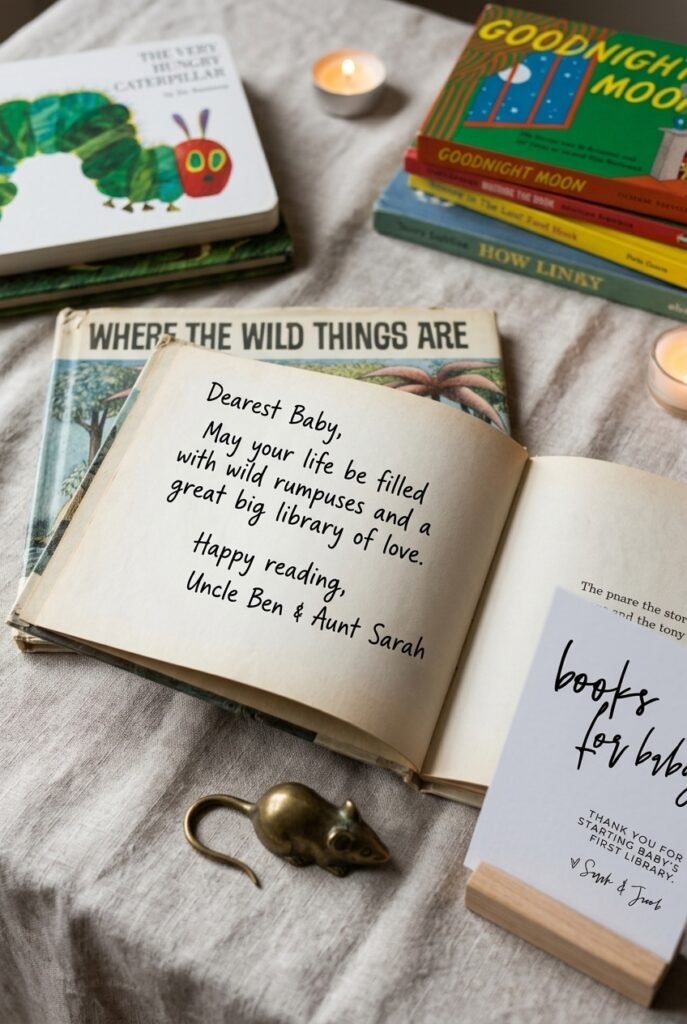 THE VERY
HUNGRY
CATERPILLAR
GOODNIGHT
MOON
GOODNIGHT MOON
HOW LINKY
WHERE THE WILD THINGS ARE
Dearest Baby,
May your life be filled
with wild rumpuses and a
great big library of love.
Happy reading,
Uncle Ben & Aunt Sarah
The pnare the stor
and the tony
books
for baby
THANK YOU FOR
STARTING BABY'S
FIRST LIBRARY.
&